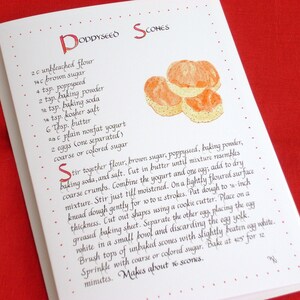 Poppyseed Scones
2 c unbleached flour
¼ c brown sugar
4 tsp. poppyseed
2 tsp. baking powder
½ tsp. baking soda
¼ tsp. kosher salt
6 Tbsp. butter
c plain nonfat yogurt
2 eggs (one separated)
coarse or colored sugar
Stir together flour, brown sugar, poppyseed, baking powder,
baking soda, and salt. Cut in butter until mixture resembles
coarse crumbs. Combine the yogurt and one egg; add to dry
mixture. Stir just till moistened. On a lightly floured surface
knead dough gently for 10 to 12 strokes. Pat dough to ½-inch
thickness. Cut out shapes using a cookie cutter. Place on a
greased baking sheet. Separate the other egg, placing the egg
white in a small bowl and discarding the egg yolk.
Brush tops of unbaked scones with slightly beaten egg white.
Sprinkle with coarse or colored sugar. Bake at 425° for 12
minutes. Makes about 16 scones.